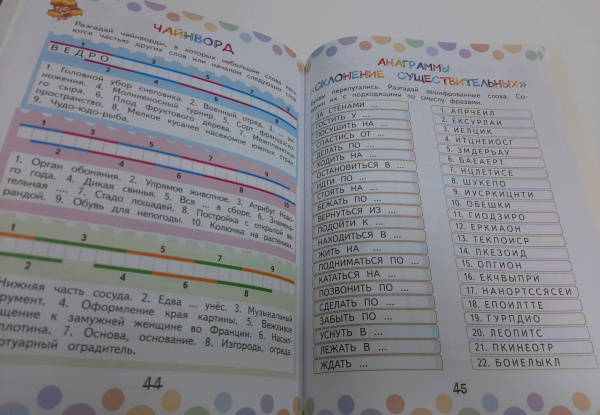 ЧАЙНВОРД
Разгадай чайнворды, в которых небольшие слова явля-
ются частью других слов или началом следующих слов.
1 3 5 7 9
ВЕДРО
2 4 6 8 10
1. Головной убор снеговика. 2. Военный отряд. 3. ... но
ножения. 4. Молниеносный турнир. 5. Сорт французско-
го сыра. 6. Плод фруктового дерева. 7. Межпланетное
пространство. 8. Мелкое кусачее насекомое южных стран.
9. Чудо-юдо-рыба.
1 3 5 7 9
2 4 6 8 10
1. Орган обоняния. 2. Упрямое животное. 3. Атрибут Ново-
го года. 4. Дикая свинья. 5. Вся ... в сборе. 6. Знамена-
тельная .... 7. Стадо лошадей. 8. Постройка с открытой ве-
рандой. 9. Обувь для непогоды. 10. Колючка на растениях.
1 3 5 7 9
2 4 6 8
Нижняя часть сосуда. 2. Едва ... унёс. 3. Музыкальный
румент. 4. Оформление края картины. 5. Вежливое
щение к замужней женщине во Франции. 6. Насып-
плотина. 7. Основа, основание. 8. Изгородь, ограда.
отуарный оградитель.
44
АНАГРАММЫ
«СКЛОНЕНИЕ СУЩЕСТВИТЕЛЬНЫХ»
перепутались. Разгадай зашифрованные слова. Со-
их с подходящими по смыслу фразами.
ЗА СТЕНАМИ ...
ГОСТИТЬ У ...
ПОСУШИТЬ НА ...
СПАСТИСЬ ОТ ...
ДЕЛАТЬ ПО ...
ХОДИТЬ НА ...
ОСТАНОВИТЬСЯ В ...
ИДТИ ПО ...
СТОЯТЬ НА ...
БЕЖАТЬ ПО ...
ВЕРНУТЬСЯ ИЗ ...
ПОДОЙТИ К ...
НАХОДИТЬСЯ В ...
ЖИТЬ НА ...
ПОДНИМАТЬСЯ ПО ...
КАТАТЬСЯ НА ...
ПОЗВОНИТЬ ПО ...
СДЕЛАТЬ ПО ...
ЗАБЫТЬ ПО ...
УСНУТЬ В ...
ЛЕЖАТЬ В ...
ЖДАТЬ ...
1. АПРЧЕИЛ
2. ЕКСУРЛАИ
3. ИЕЛЦИК
4. ИТЦНЕИОСГ
5. ЗМДЕРЬАУ
6. БАЕАЕРТ
7. НЦЛЕТИСЕ
8. ШУКЕПО
9. ИУСРКИЦНТИ
10. ОБЕШКИ
11. ГИОДЗИРО
12. ЕРКИАОН
13. ТЕКПОИСР
14. ПКЕЗОИД
15. ОПГИОН
16. ЕКЧВЫПРИ
17. НАНОРТССЯСЕИ
18. ЕПОИЛТТЕ
19. ГУРПДИО
20. ЛЕОПИТС
21. ПКИНЕОТР
22. БОИЕЛЫКЛ
45